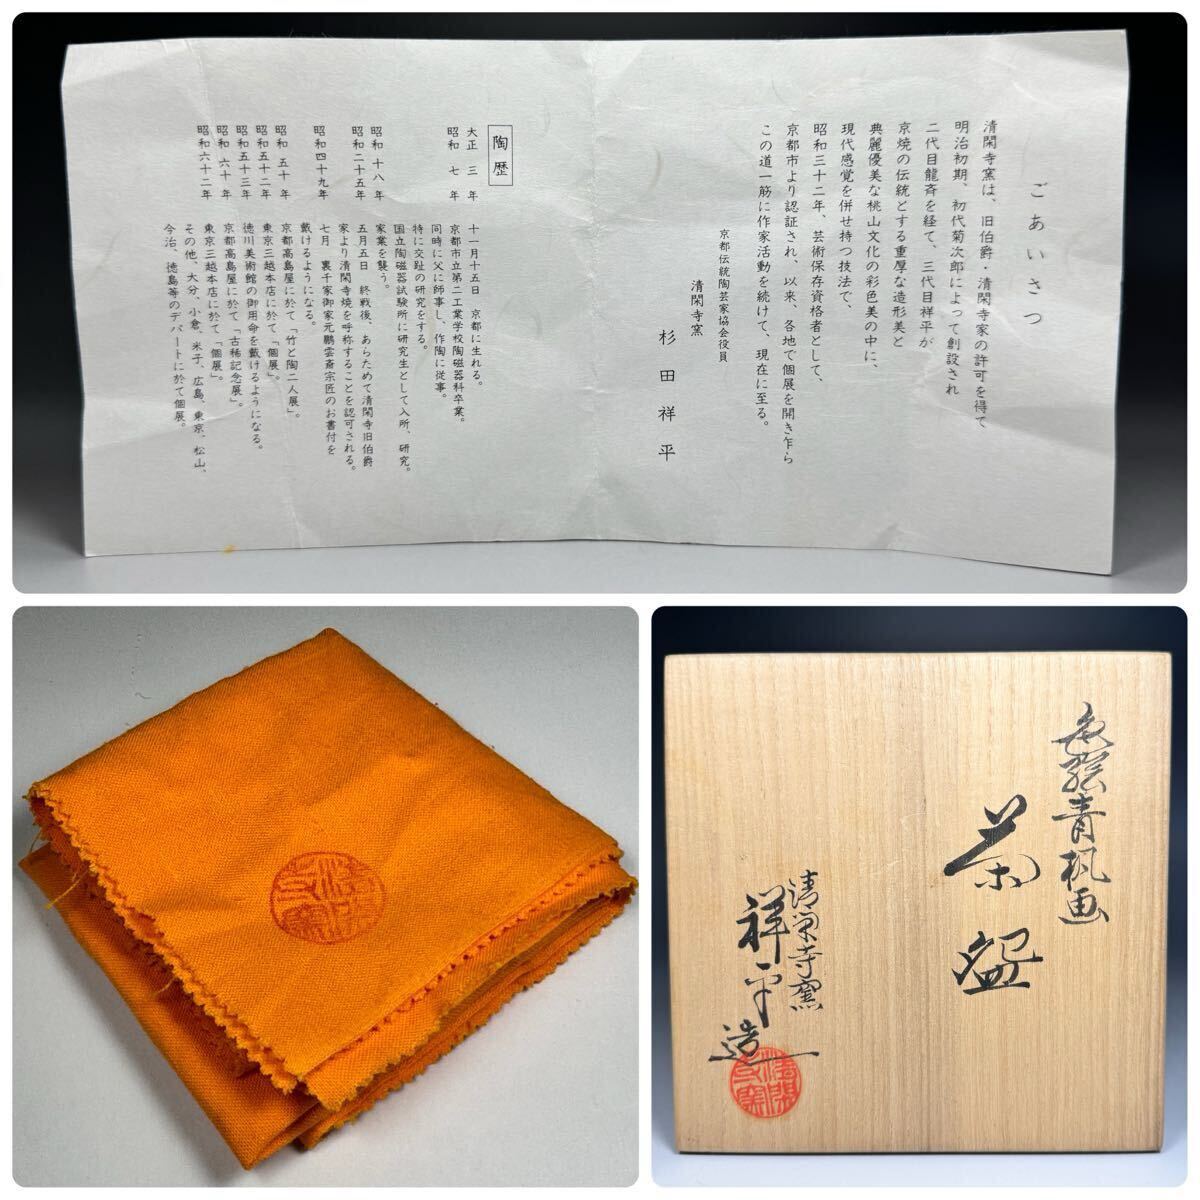 ごあいさつ
清閑寺窯は、旧伯爵・清閑寺家の許可を得て
明治初期、初代菊次郎によって創設され
二代目龍斉を経て、三代目祥平が
京焼の伝統とする重厚な造形美と
典麗優美な桃山文化の彩色美の中に、
現代感覚を併せ持つ技法で、
昭和三十二年、芸術保存資格者として、
京都市より認証され、以来、各地で個展を開き乍ら
この道一筋に作家活動を続けて、現在に至る。
京都伝統陶芸家協会役員
清閑寺窯
杉田祥平
陶歴
大正三年 十一月十五日 京都に生れる。
昭和七年 京都市立第二工業学校陶磁器科卒業。
同時に父に師事し、作陶に従事。
特に交趾の研究をする。
昭和十八年 国立陶磁器試験所に研究生として入所、研究。
家業を襲う。
昭和二十五年 五月五日 終戦後、あらためて清閑寺旧伯爵
家より清閑寺焼を呼称することを認可される。
昭和四十九年 七月 裏千家御家元鵬雲斎宗匠のお書付を
戴けるようになる。
昭和五十年 京都高島屋に於て「竹と陶二人展」。
昭和五十二年 東京三越本店に於て「個展」。
昭和五十三年 徳川美術館の御用命を戴けるようになる。
昭和六十年 京都高島屋に於て「古稀記念展」。
昭和六十二年 東京三越本店に於て「個展」。
その他、大分、小倉、米子、広島、東京、松山、
今治、徳島等のデパートに於て個展。
色絵青楓画
茶盌
清閑寺窯
祥平造
清閑寺窯